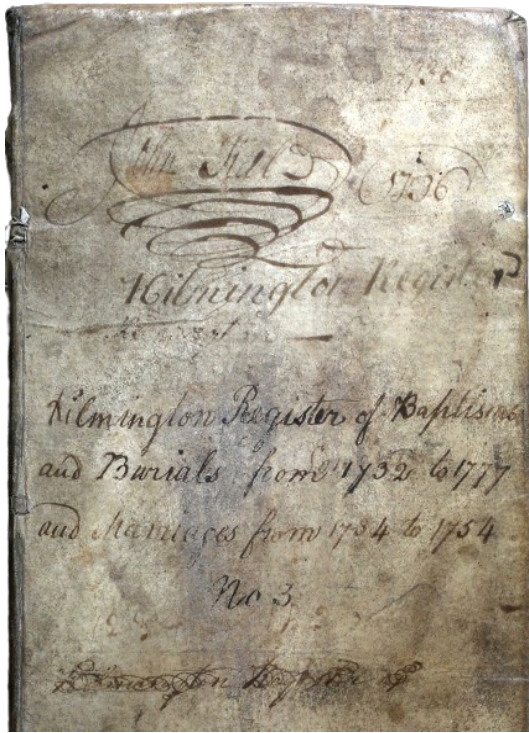 John
1736
Kilmington Register
Kilmington Register of Baptisms
and Burials from 1732 to 1777
and Marriages from 1734 to 1754
No 3